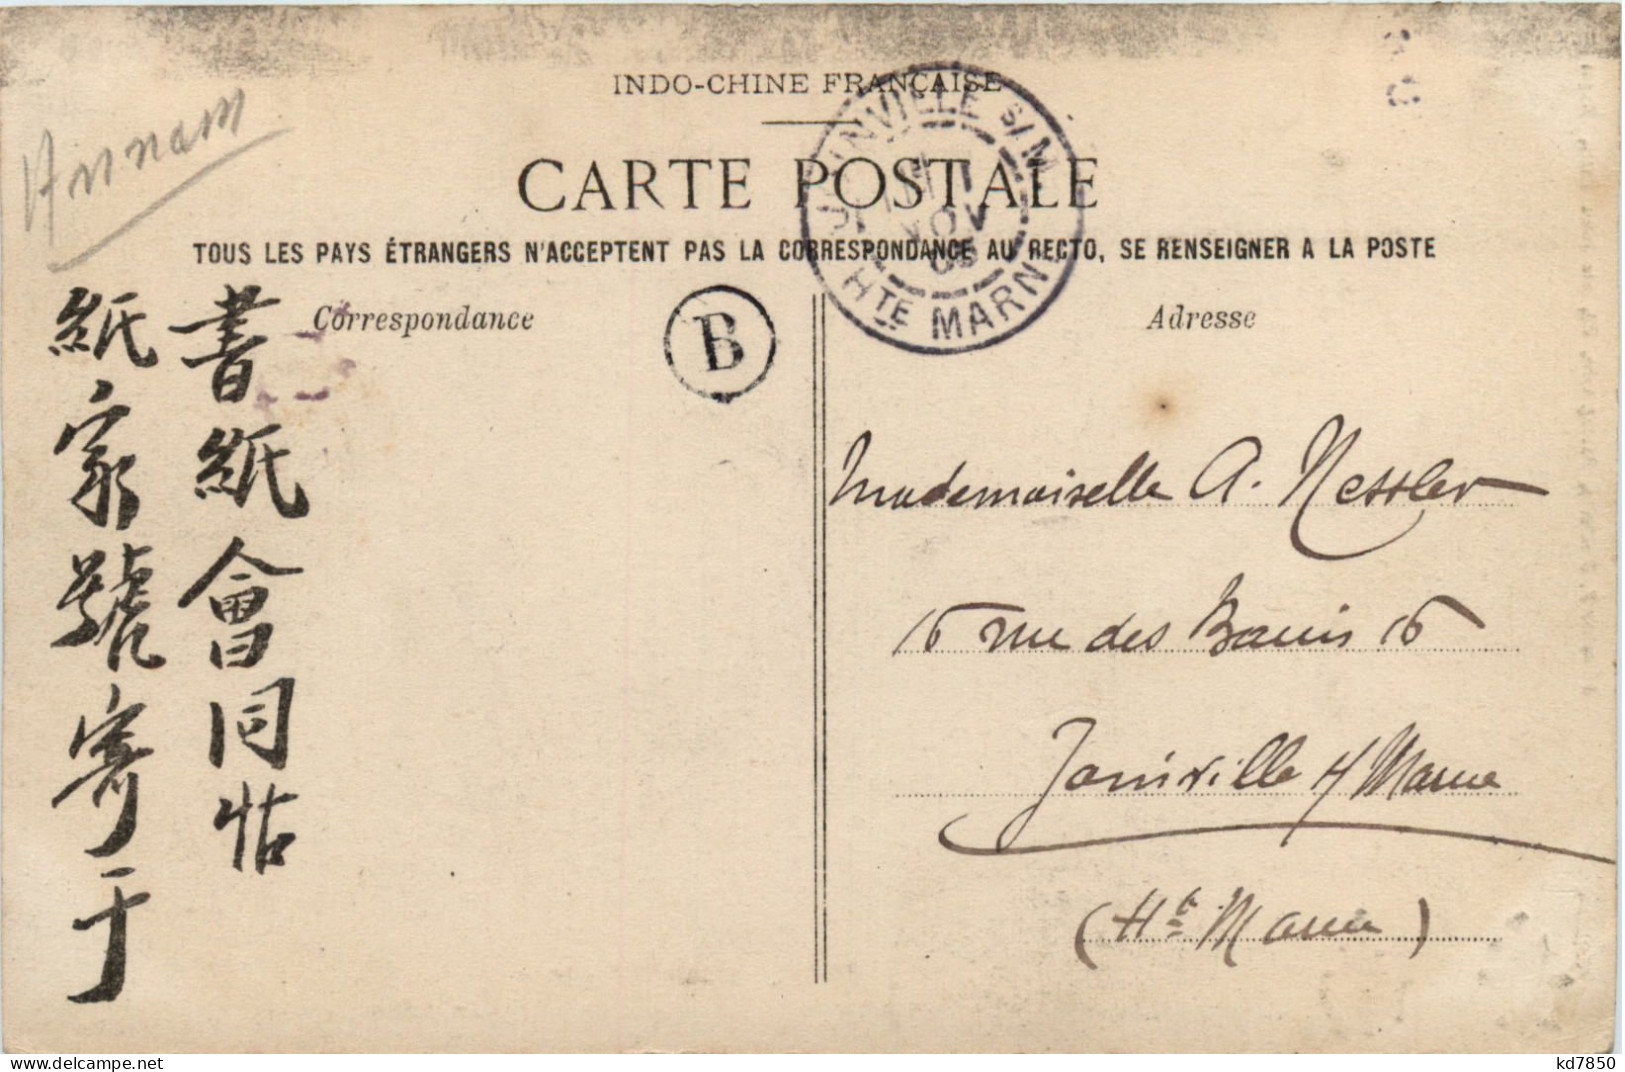 INDO-CHINE FRANÇAISE
Annam
CARTE POSTALE
TOUS LES PAYS ÉTRANGERS N'ACCEPTENT PAS LA CORRESPONDANCE AU RECTO, SE RENSEIGNER A LA POSTE
JOINVILLE S/M
NOV
HTE MARN
Correspondance
B
Adresse
書紙會同帖
紙家號寄于
Mademoiselle A. Nessler
16 rue des Bains 16
Joinville s/Marne
(Hte Marne)
kd7850